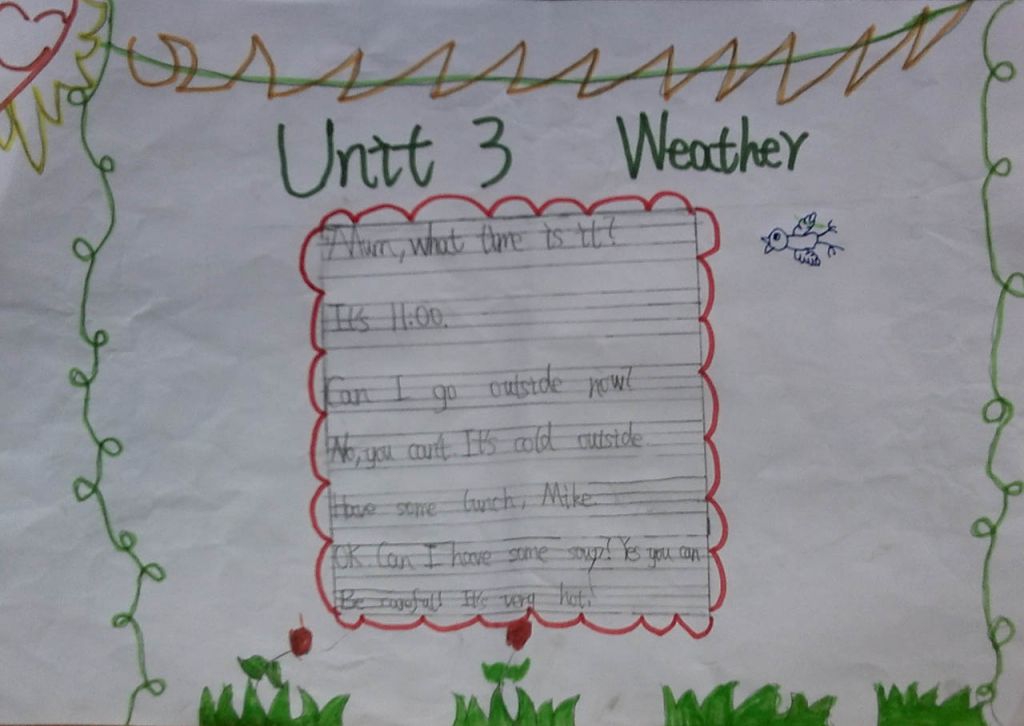 Unit 3 Weather
Mum, what time is it?
It's 11:00.
Can I go outside now?
No, you can't. It's cold outside.
Have some lunch, Mike.
OK. Can I have some soup? Yes you can
Be careful! It's very hot!